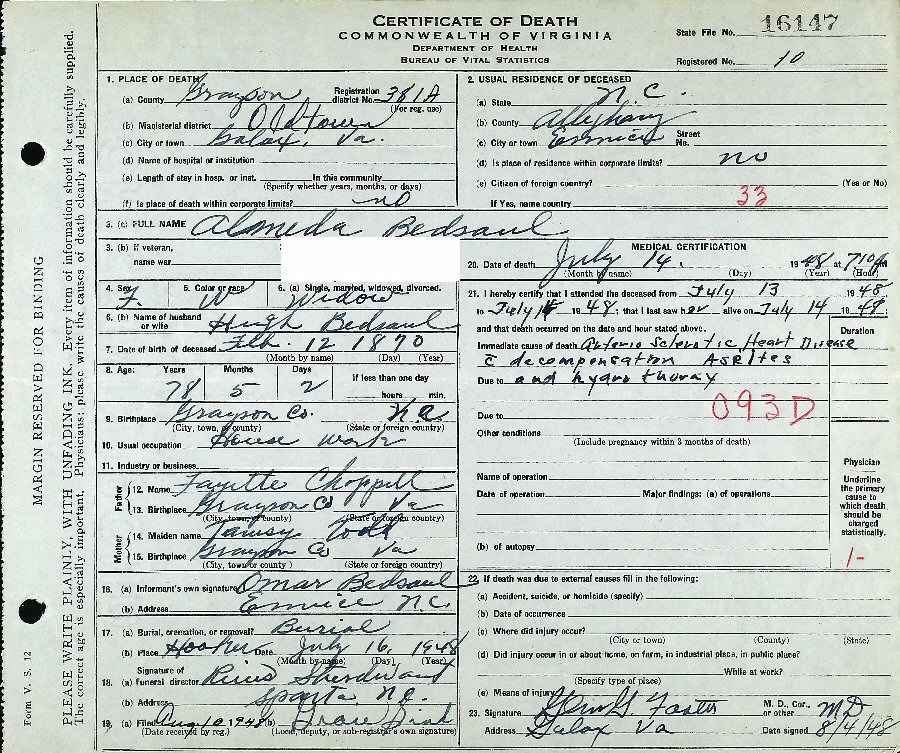 CERTIFICATE OF DEATH
COMMONWEALTH OF VIRGINIA
DEPARTMENT OF HEALTH
BUREAU OF VITAL STATISTICS
State File No. 16147
Registered No. 10
MARGIN RESERVED FOR BINDING
PLEASE WRITE PLAINLY, WITH UNFADING INK. Every item of information should be carefully supplied.
The correct age is especially important. Physicians: please write the causes of death clearly and legibly.
Form V. S. 12
1. PLACE OF DEATH
(a) County Grayson Registration district No. 381A
(For reg. use)
(b) Magisterial district Oldtown
(c) City or town Galax, Va.
(d) Name of hospital or institution
(e) Length of stay in hosp. or inst. In this community
(Specify whether years, months, or days)
(f) Is place of death within corporate limits? no
2. USUAL RESIDENCE OF DECEASED
(a) State N.C.
(b) County Alleghany
(c) City or town Ennice Street No.
(d) Is place of residence within corporate limits? no
(e) Citizen of foreign country? (Yes or No)
If Yes, name country 33
3. (a) FULL NAME Almeda Bedsaul
3. (b) If veteran,
name war
4. Sex 5. Color or race 6. (a) Single, married, widowed, divorced.
F. W Widow
6. (b) Name of husband or wife Hugh Bedsaul
7. Date of birth of deceased Feb. 12 1870
(Month by name) (Day) (Year)
8. Age: Years Months Days If less than one day
78 5 2 hours min.
9. Birthplace Grayson Co. N.C.
(City, town, or county) (State or foreign country)
10. Usual occupation House work
11. Industry or business
Father
12. Name Fayette Choppell
13. Birthplace Grayson Co Va
(City, town, or county) (State or foreign country)
Mother
14. Maiden name Tamsy Todd
15. Birthplace Grayson Co Va
(City, town or county) (State or foreign country)
16. (a) Informant's own signature Omar Bedsaul
(b) Address Ennice N.C.
17. (a) Burial, cremation, or removal? Burial
(b) Place Hooker Date July 16, 1948
(Month by name) (Day) (Year)
18. Signature of
(a) funeral director
(b) Address Sparta N.C.
19. (a) Filed Aug 10 1948 (b) Grace
(Date received by reg.) (Local, deputy, or sub-registrar's own signature)
MEDICAL CERTIFICATION
20. Date of death July 14. 1948 at 710 PM
(Month by name) (Day) (Year) (Hour)
21. I hereby certify that I attended the deceased from July 13 1948
to July 14 1948; that I last saw her alive on July 14 1948.
and that death occurred on the date and hour stated above.
Duration
Immediate cause of death Arterio Sclerotic Heart Disease
c̄ decompensation Ascites
Due to and hydro thorax
093D
Due to
Other conditions
(Include pregnancy within 3 months of death)
Name of operation
Date of operation Major findings: (a) of operations
(b) of autopsy
Physician
Underline the primary cause to which death should be charged statistically.
1-
22. If death was due to external causes fill in the following:
(a) Accident, suicide, or homicide (specify)
(b) Date of occurrence
(c) Where did injury occur?
(City or town) (County) (State)
(d) Did injury occur in or about home, on farm, in industrial place, in public place?
While at work?
(Specify type of place)
(e) Means of injury
23. Signature Foster M. D., Cor., or other MD
Address Galax Va Date signed 8/4/48